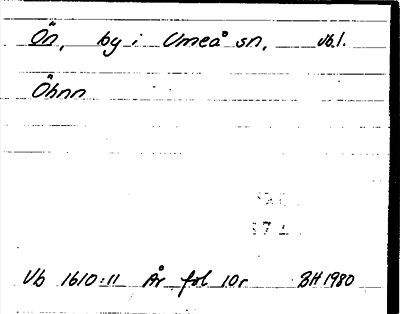 Ön, by i Umeå sn, Vb.l.
Öhnn
Vb 1610:11 År fol 10r BH 1980